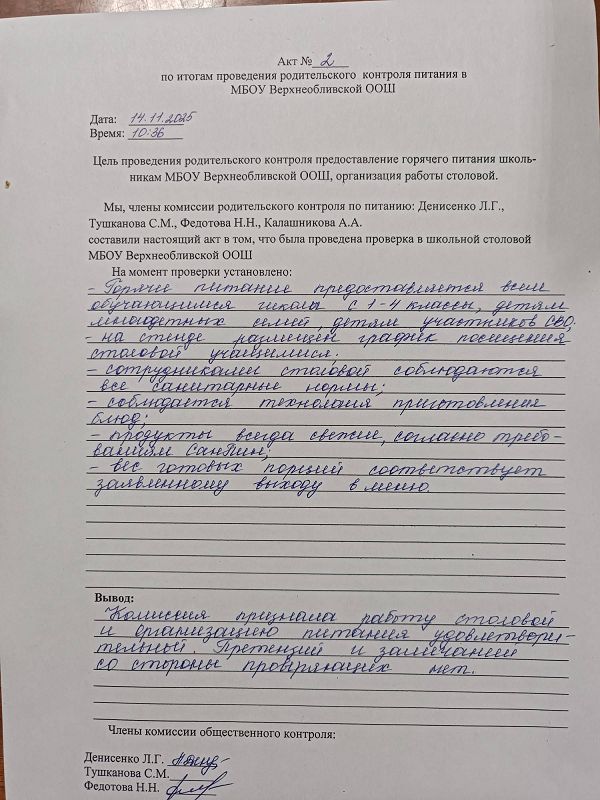 Акт № 2
по итогам проведения родительского контроля питания в
МБОУ Верхнеобливской ООШ
Дата: 14.11.2025
Время: 10:36
Цель проведения родительского контроля предоставление горячего питания школь-
никам МБОУ Верхнеобливской ООШ, организация работы столовой.
Мы, члены комиссии родительского контроля по питанию: Денисенко Л.Г.,
Тушканова С.М., Федотова Н.Н., Калашникова А.А.
составили настоящий акт в том, что была проведена проверка в школьной столовой
МБОУ Верхнеобливской ООШ
На момент проверки установлено:
- Горячие питание предоставляется всем
обучающимися школы с 1-4 классы, детям
многодетных семей, детям участников СВО;
- на стенде размещен график посещения
столовой учащимися.
- сотрудниками столовой соблюдаются
все санитарные нормы;
- соблюдается технолгия приготовления
блюд;
- продукты всегда свежие, согласно требо-
ваниям СанПин;
- вес готовых порций соответствует
заявленному выходу в меню.
Вывод:
Комиссия признала работу столовой
и организацию питания удовлетвори-
тельный. Претензий и замечаний
со стороны проверяющих нет.
Члены комиссии общественного контроля:
Денисенко Л.Г.
Тушканова С.М.
Федотова Н.Н.